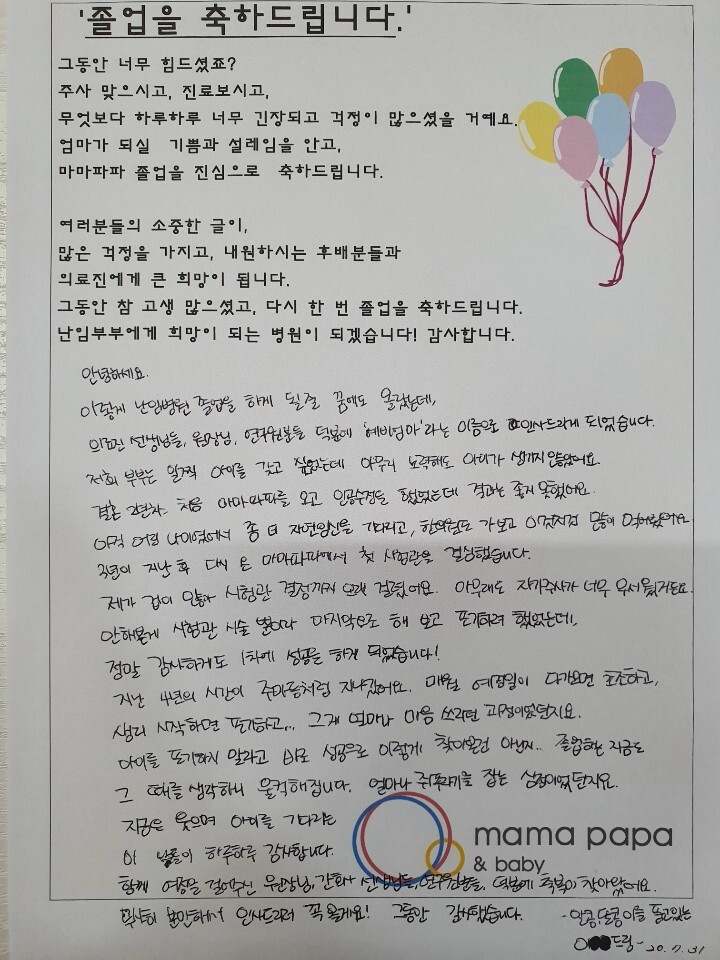 '졸업을 축하드립니다.'
그동안 너무 힘드셨죠?
주사 맞으시고, 진료보시고,
무엇보다 하루하루 너무 긴장되고 걱정이 많으셨을 거예요.
엄마가 되실 기쁨과 설레임을 안고,
마마파파 졸업을 진심으로 축하드립니다.
여러분들의 소중한 글이,
많은 걱정을 가지고, 내원하시는 후배분들과
의료진에게 큰 희망이 됩니다.
그동안 참 고생 많으셨고, 다시 한 번 졸업을 축하드립니다.
난임부부에게 희망이 되는 병원이 되겠습니다! 감사합니다.
안녕하세요.
이렇게 난임병원 졸업을 하게 될줄 꿈에도 몰랐는데,
의료진 선생님들, 원장님, 연구원분들 덕분에 '예비엄마'라는 이름으로 인사드리게 되었습니다.
저희 부부는 일찍 아이를 갖고 싶었는데 아무리 노력해도 아이가 생기지 않았어요.
결혼 2년차 처음 마마파파를 오고 인공수정을 했었는데 결과는 좋지 못했어요.
아직 어린 나이였어서 좀 더 자연임신을 기다리고, 한의원도 가보고 이것저것 많이 먹어봤어요
2년이 지난 후 다시 온 마마파파에서 첫 시험관을 결심했습니다.
제가 겁이 많아 시험관 결정까지 오래 걸렸어요. 아무래도 자가주사가 너무 무서웠거든요.
안해본게 시험관 시술 뿐이라 마지막으로 해 보고 포기하려 했었는데!,
정말 감사하게도 1차에 성공을 하게 되었습니다!
지난 4년의 시간이 주마등처럼 지나갔어요. 매월 예정일이 다가오면 초조하고,
생리 시작하면 포기하고... 그게 얼마나 마음 쓰라린 과정이었던지요.
아이를 포기하지 말라고 바로 성공으로 이렇게 찾아온건 아닌지.. 졸업하는 지금도
그 때를 생각하니 울컥해집니다. 얼마나 지푸라기를 잡는 심정이었던지요.
지금은 웃으며 아이를 기다리는
이 날들이 하루하루 감사합니다.
mama papa
& baby
함께 여정을 걸어주신 원장님, 간호사 선생님들, 연구원님들, 덕분에 축복이 찾아왔어요.
무사히 분만해서 인사드리러 꼭 올게요! 그동안 감사했습니다.
-인공,달콩이를 품고있는
이 드림- 20.7.31